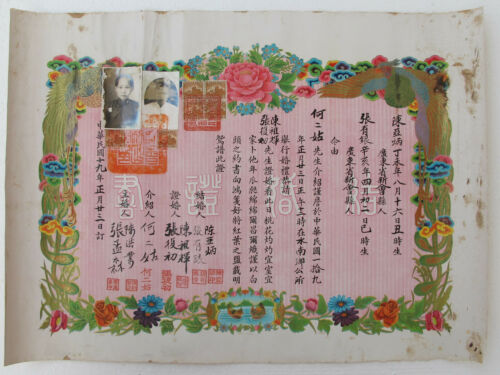 陳亞炳丁未年八月十六日丑時生
廣東省新會縣人
張有銀辛亥年四月初二巳時生
廣東省新會縣人
今由
何二姑先生介紹謹詹於中華民國一十九
年正月廿三日正午十二時在水南鄉公所
舉行婚禮恭請
陳祖輝
張後初先生證婚看此日桃花灼灼宜室宜
家卜他年瓜瓞綿綿爾昌爾熾謹以白
頭之約書向鴻箋好將紅葉之盟載明
鴛譜此證
結婚人 陳亞炳
張有銀
證婚人 陳祖輝
張後初
介紹人 何二姑
張孟
中華民國十九年正月廿三日訂